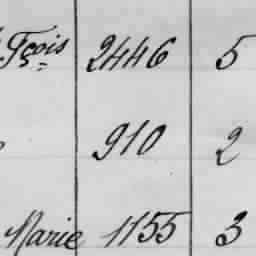 Fçois 2446 5
910 2
Marie 1155 3